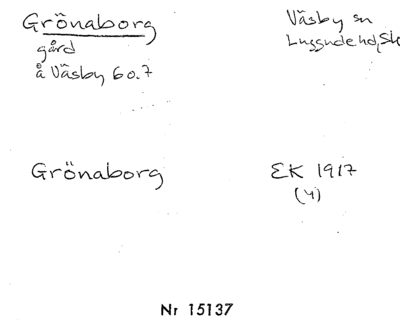 Grönaborg
gård
å Väsby 60.7
Väsby sn
Luggude hd, Sk
Grönaborg
EK 1917
(4)
Nr 15137